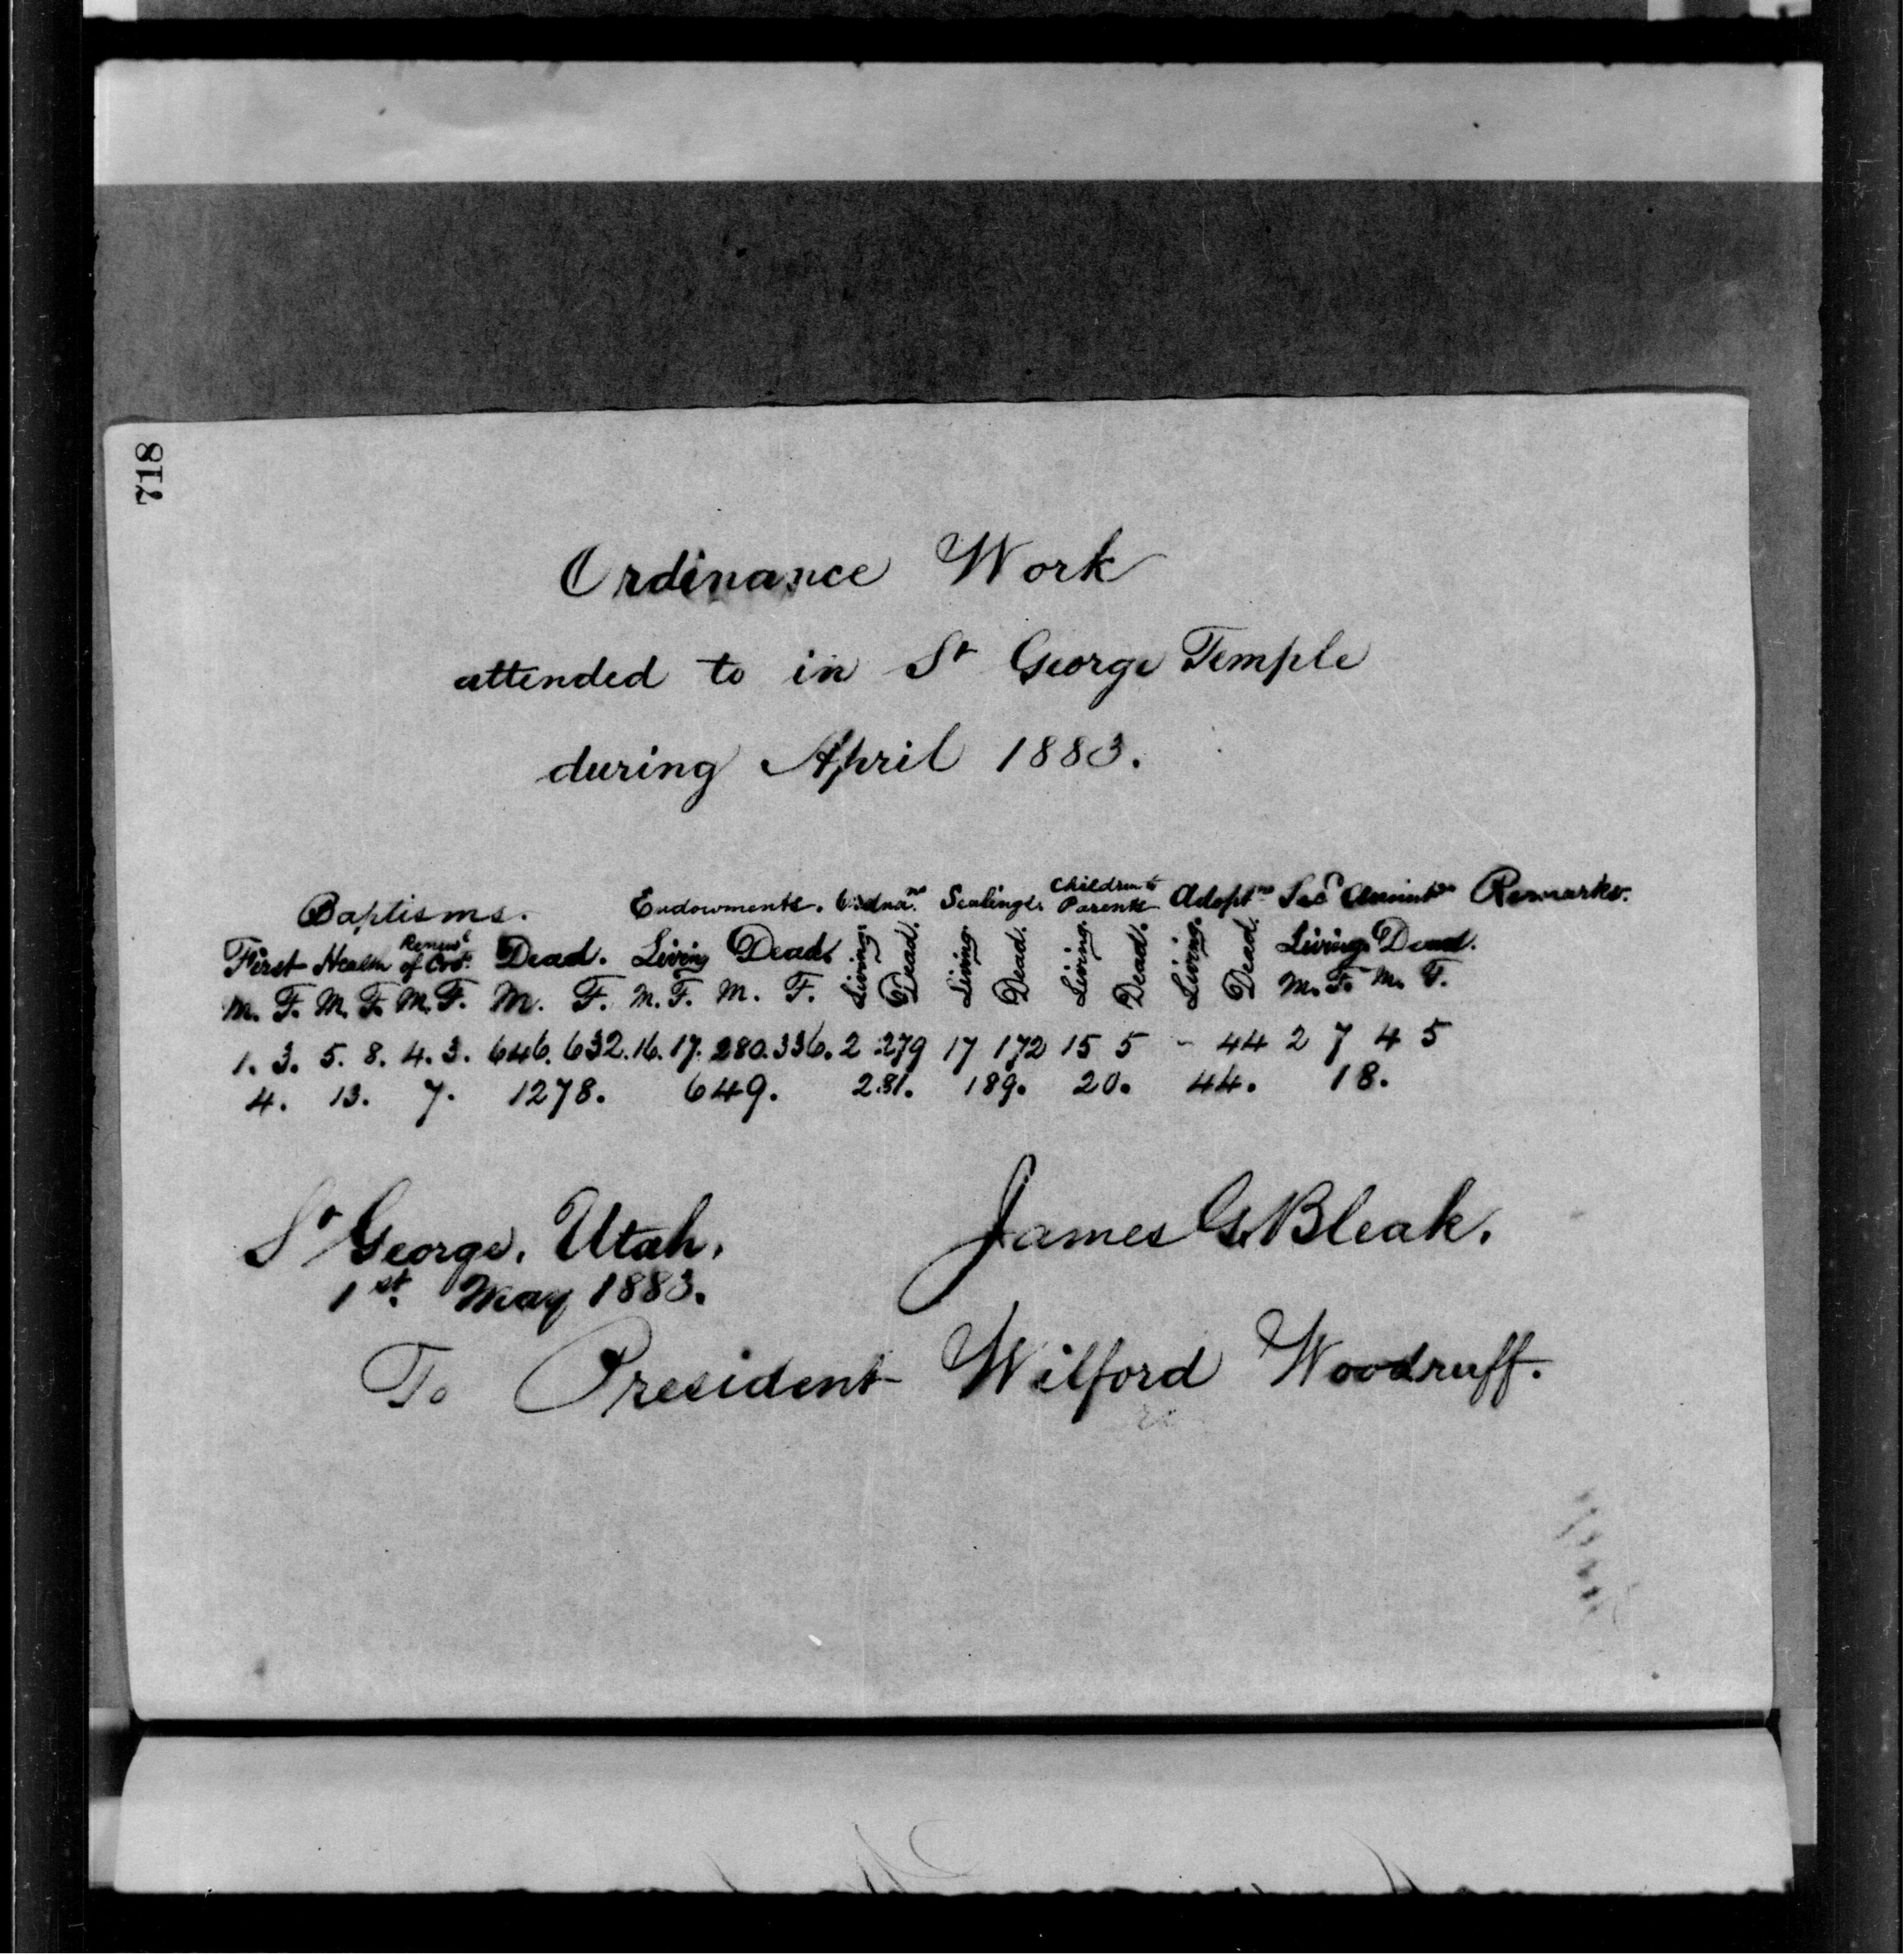 718
Ordinance Work
attended to in St George Temple
during April 1883.
Baptisms. Endowments. Ordna.ns Sealings. Children to Parents Adopt.ns Sec.d Anoint.gs Remarks.
First Health Renew.l of Cov.t Dead. Living Dead. Living. Dead. Living. Dead. Living. Dead. Living. Dead. Living. Dead.
M. F. M. F. M. F. M. F. M. F. M. F. M. F. M. F.
1. 3. 5. 8. 4. 3. 646. 632. 16. 17. 280. 336. 2 279 17 172 15 5 - 44 2 7 4 5
4. 13. 7. 1278. 649. 281. 189. 20. 44. 18.
St George, Utah,
1st. May 1883.
James G. Bleak.
To President Wilford Woodruff.